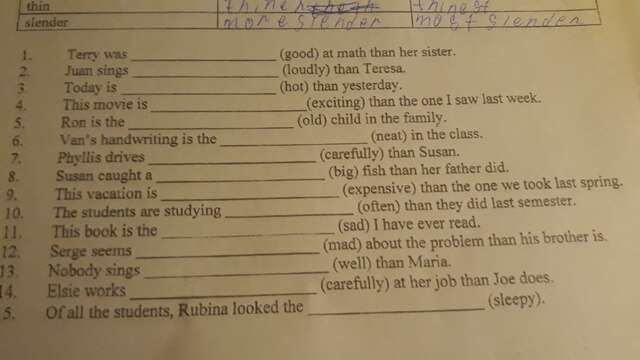 thin thiner thinest
slender more slender most slender
1. Terry was ____________ (good) at math than her sister.
2. Juan sings ____________ (loudly) than Teresa.
3. Today is ____________ (hot) than yesterday.
4. This movie is ____________ (exciting) than the one I saw last week.
5. Ron is the ____________ (old) child in the family.
6. Van's handwriting is the ____________ (neat) in the class.
7. Phyllis drives ____________ (carefully) than Susan.
8. Susan caught a ____________ (big) fish than her father did.
9. This vacation is ____________ (expensive) than the one we took last spring.
10. The students are studying ____________ (often) than they did last semester.
11. This book is the ____________ (sad) I have ever read.
12. Serge seems ____________ (mad) about the problem than his brother is.
13. Nobody sings ____________ (well) than Maria.
14. Elsie works ____________ (carefully) at her job than Joe does.
5. Of all the students, Rubina looked the ____________ (sleepy).